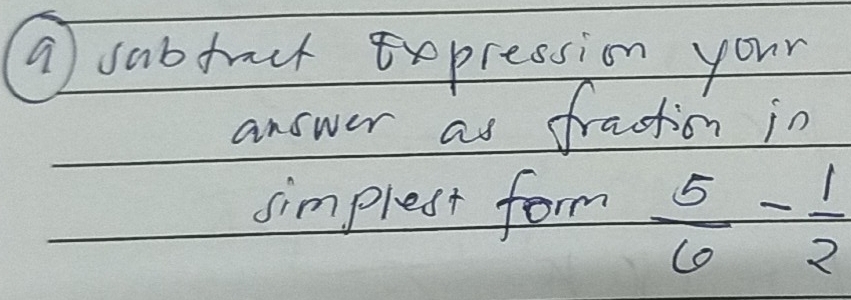 a) subtract Expression your
answer as fraction in
simplest form 5/6 - 1/2